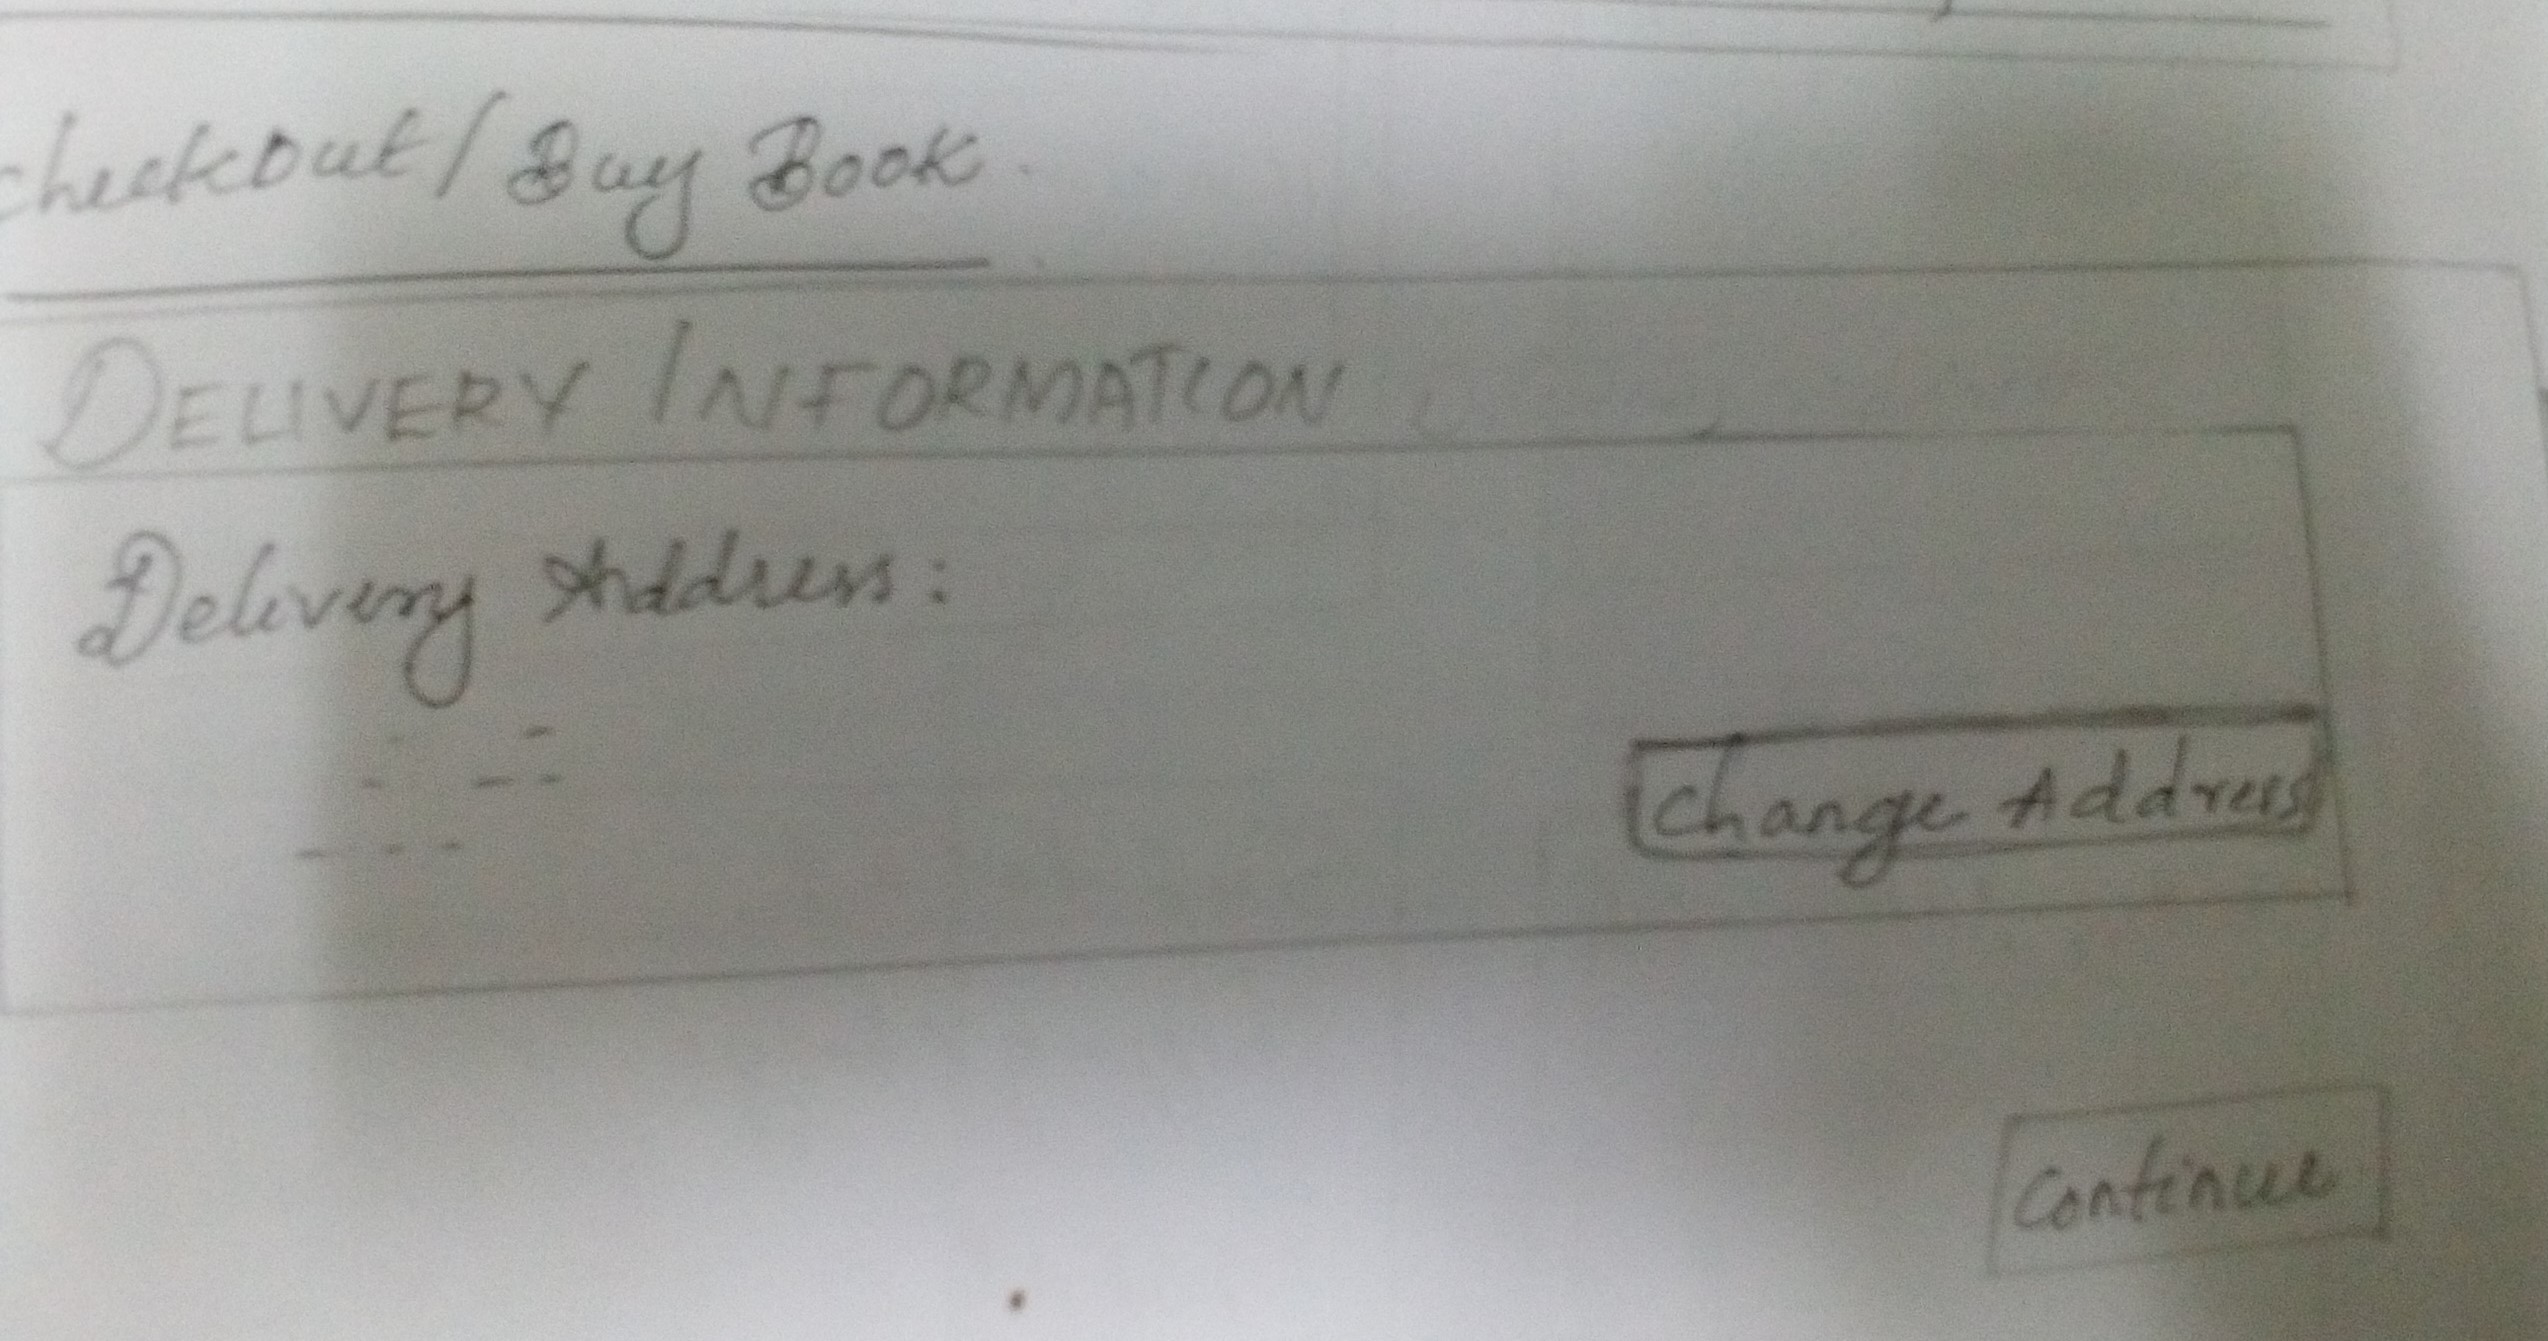 Checkout/Buy Book.
DELIVERY INFORMATION
Delivery Address:
Change Address
Continue